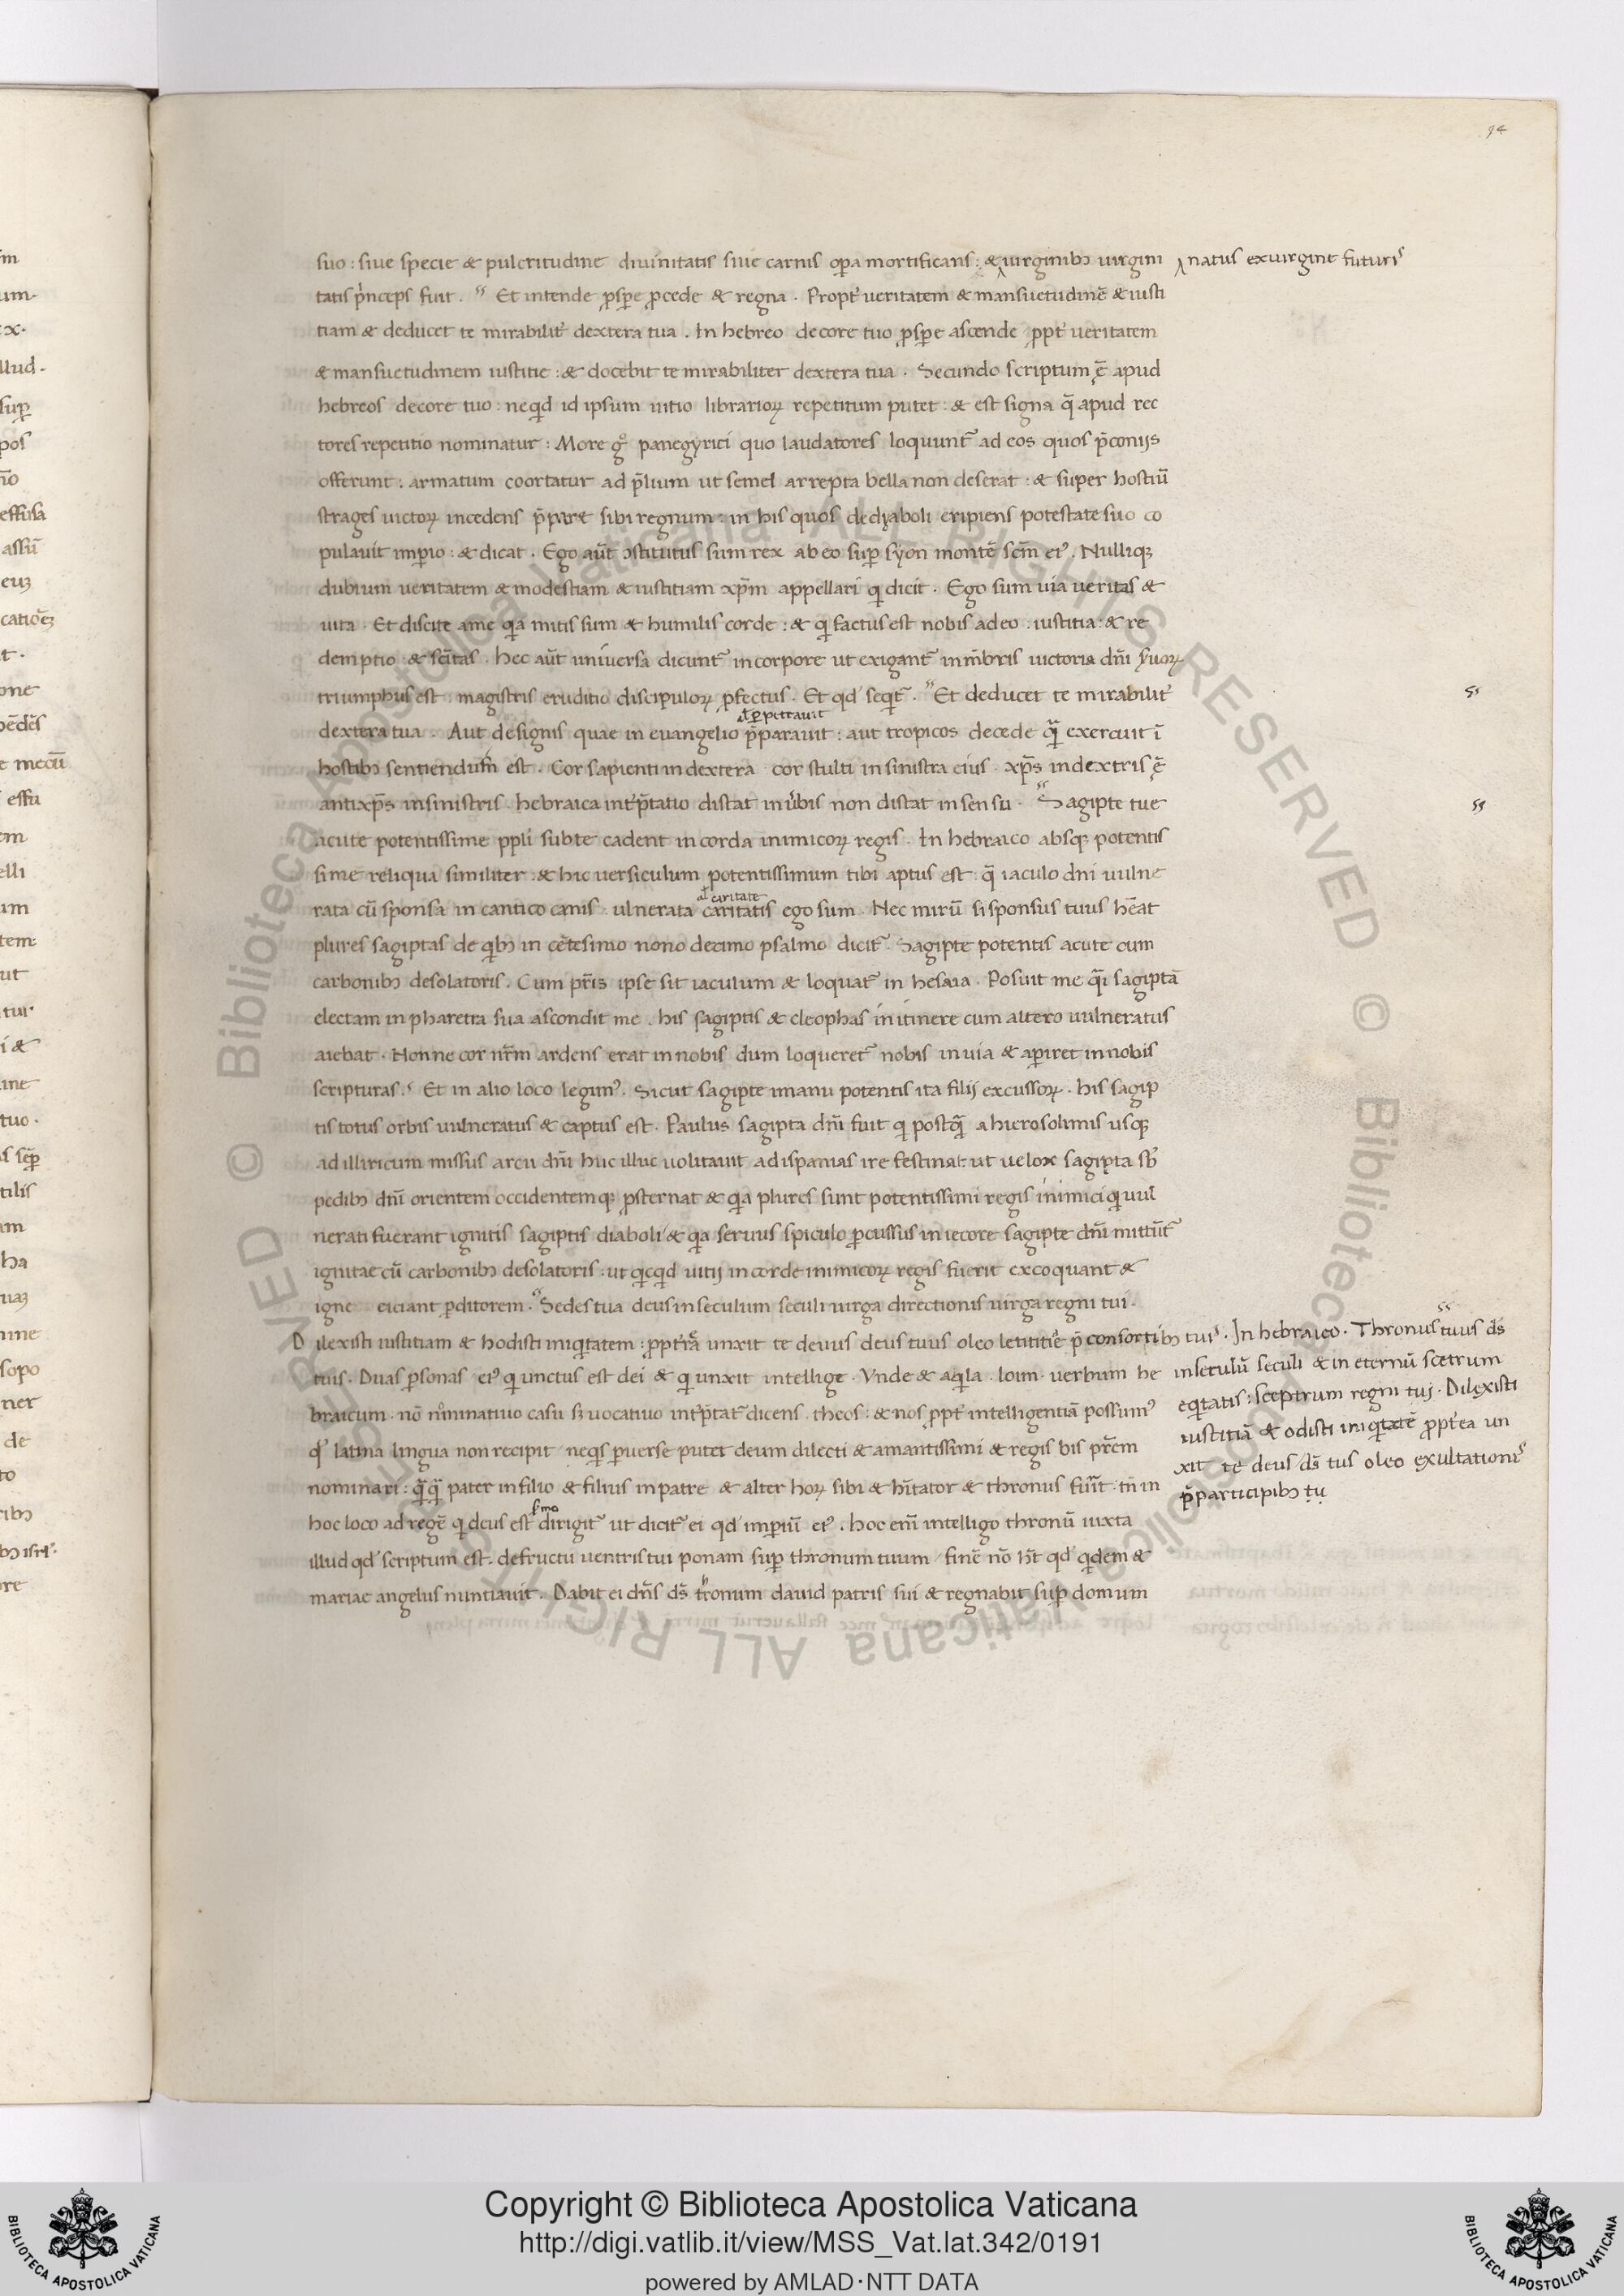 94
suo : siue specie & pulcritudine diuinitatis siue carnis oꝑa mortificans : & uirginibꝫ uirgini
natus ex uirgine futuris
tatis pͥnceps fuit . Et intende ꝓsꝑe ꝓcede & regna . Propt̉ veritatem & mansuetudinē & iusti
tiam & deducet te mirabilit̉ dextera tua . In hebreo decore tuo ꝓsꝑe ascende ꝓpt̉ veritatem
& mansuetudinem iustitie : & docebit te mirabiliter dextera tua . Secundo scriptum ē apud
hebreos decore tuo : neqͥd id ipsum uitio librarioꝝ repetitum putet : & est signa q̄ apud rec
tores repetitio nominatur : More gͦ panegyrici quo laudatores loquunt᷑ ad eos quos p̄conijs
offerunt . armatum coortatur ad p̄lium ut semel arrepta bella non deserat : & super hostiū
strages uictoꝝ incedens p̄paret sibi regnum : in his quos de dyaboli eripiens potestate suo co
pulauit imꝑio : & dicat . Ego aūt ↄstitutus sum rex ab eo suꝑ syon montē scm̄ eiꝰ . Nulliqꝫ
dubium ueritatem & modestiam & iustitiam xp̄m appellari qͥ dicit . Ego sum uia ueritas &
uita . Et discite a me qͥa mitis sum & humilis corde : & qͥ factus est nobis a deo : iustitia : & re
demptio & scītas . Hec aūt uniuersa dicunt᷑ in corpore ut exigant᷑ in mēbris uictoria dn̄i suoꝝ
triumphus est magistris eruditio discipuloꝝ ꝓfectus . Et qd̓ seqͥt᷑ . Et deducet te mirabilit̉
ss
aƚ ꝑpetrauit
dextera tua . Aut de signis quae in euangelio p̄parauit : aut tropicos de cede qᷓ exercuit ī
hostibꝫ sentiendum est . Cor sapienti in dextera cor stulti in sinistra eius . xp̄s in dextris ē
antixp̄s in sinistris . hebraica int̉p̄tatio distat in u̓bis non distat in sensu . Sagipte tue
ss
acute potentissime ppli sub te cadent in corda inimicoꝝ regis . In hebraico absqꝫ potentis
sime reliqua similiter . & hic uersiculum potentissimum tibi aptus est : q̄ iaculo dni uulne
aƚ caritate
rata cū sponsa in cantico canis . ulnerata caritatis ego sum . Nec mirū si sponsus tuus hēat
plures sagiptas de qͥbꝫ in cētesimo nono decimo psalmo dicit᷑ . Sagipte potentis acute cum
carbonibꝫ desolatoris . Cum pr̄is ipse sit iaculum & loquat᷑ in hesaia . Posuit me qᷓi sagiptā
electam in pharetra sua ascondit me . his sagiptis & cleophas in itinere cum altero uulneratus
aiebat . Nonne cor nr̄m ardens erat in nobis dum loqueret᷑ nobis in uia & aꝑiret in nobis
scripturas . Et in alio loco legimꝰ . Sicut sagipte i manu potentis ita filij excussoꝝ . his sagip
tis totus orbis uulneratus & captus est . Paulus sagipta dn̄i fuit qͥ postqᷓ a hierosolimis usqꝫ
ad illiricum missus arcu dn̄i huc illuc uolitauit ad ispanias ire festinat ut uelox sagipta sb̓
pedibꝫ dn̄i orientem occidentemqꝫ ꝓsternat & qͥa plures sunt potentissimi regis inimici qͥ uul
nerati fuerant ignitis sagiptis diaboli & qͥa seruus spiculo ꝑcussus in iecore sagipte dn̄i mittūt᷑
ignitae cū carbonibꝫ desolatoris : ut qͥcqͥd uitij in corde inimicoꝝ regis fuerit excoquant &
igne eiciant ꝑditorem . Sedes tua deus in seculum seculi uirga directionis uirga regni tui .
Dilexisti iustitiam & hodisti iniqͥtatem : ꝓpt̉ea unxit te deuus deus tuus oleo letititiē p̄ consortibꝫ
tuis . Duas ꝑsonas eiꝰ qͥ unctus est dei & qͥ unxit intellige . Vnde & aqͥla . loim . uerbum he
braicum . nō nominatiuo casu sꝫ uocatiuo int̉p̄tat᷑ dicens . theos : & nos ꝓpt̉ intelligentiā possumꝰ
qd̓ latina lingua non recipit neqͥs ꝑuerse putet deum dilecti & amantissimi & regis bis pr̄em
nominari : qᷓqᷓ pater in filio & filius in patre & alter hoꝝ sibi & hītator & thronus fuīt : tn̄ in
hoc loco ad regē qͥ deus est sermo dirigit᷑ ut dicit᷑ ei qd̓ imꝑiū eiꝰ . hoc enī intelligo thronū iuxta
illud qd̓ scriptum est . de fructu uentris tui ponam suꝑ thronum tuum finē nō h̄t qd̓ qͥdem &
mariae angelus nuntiauit . Dabit ei dn̄s ds̄ thronum dauid patris sui & regnabit suꝑ domum
ss
tuis . In hebraico . Thronus tuus ds̄
in seculū seculi & in eternū scetrum
eqͥtatis : sceptrum regni tuj . Dilexisti
iustitiā & odisti iniqͥtatē ꝓpt̉ea un
xit te deus ds̄ tus oleo exultationis
p̄ participibꝫ tu
Copyright © Biblioteca Apostolica Vaticana
http://digi.vatlib.it/view/MSS_Vat.lat.342/0191
powered by AMLAD·NTT DATA